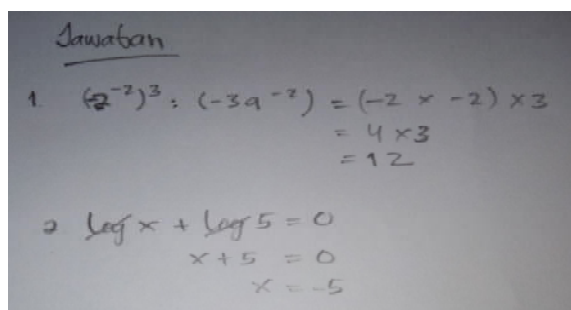 Jawaban
1. (2⁻²)³ : (-3a⁻²) = (-2 × -2) × 3
= 4 × 3
= 12
2 log x + log 5 = 0
x + 5 = 0
x = -5